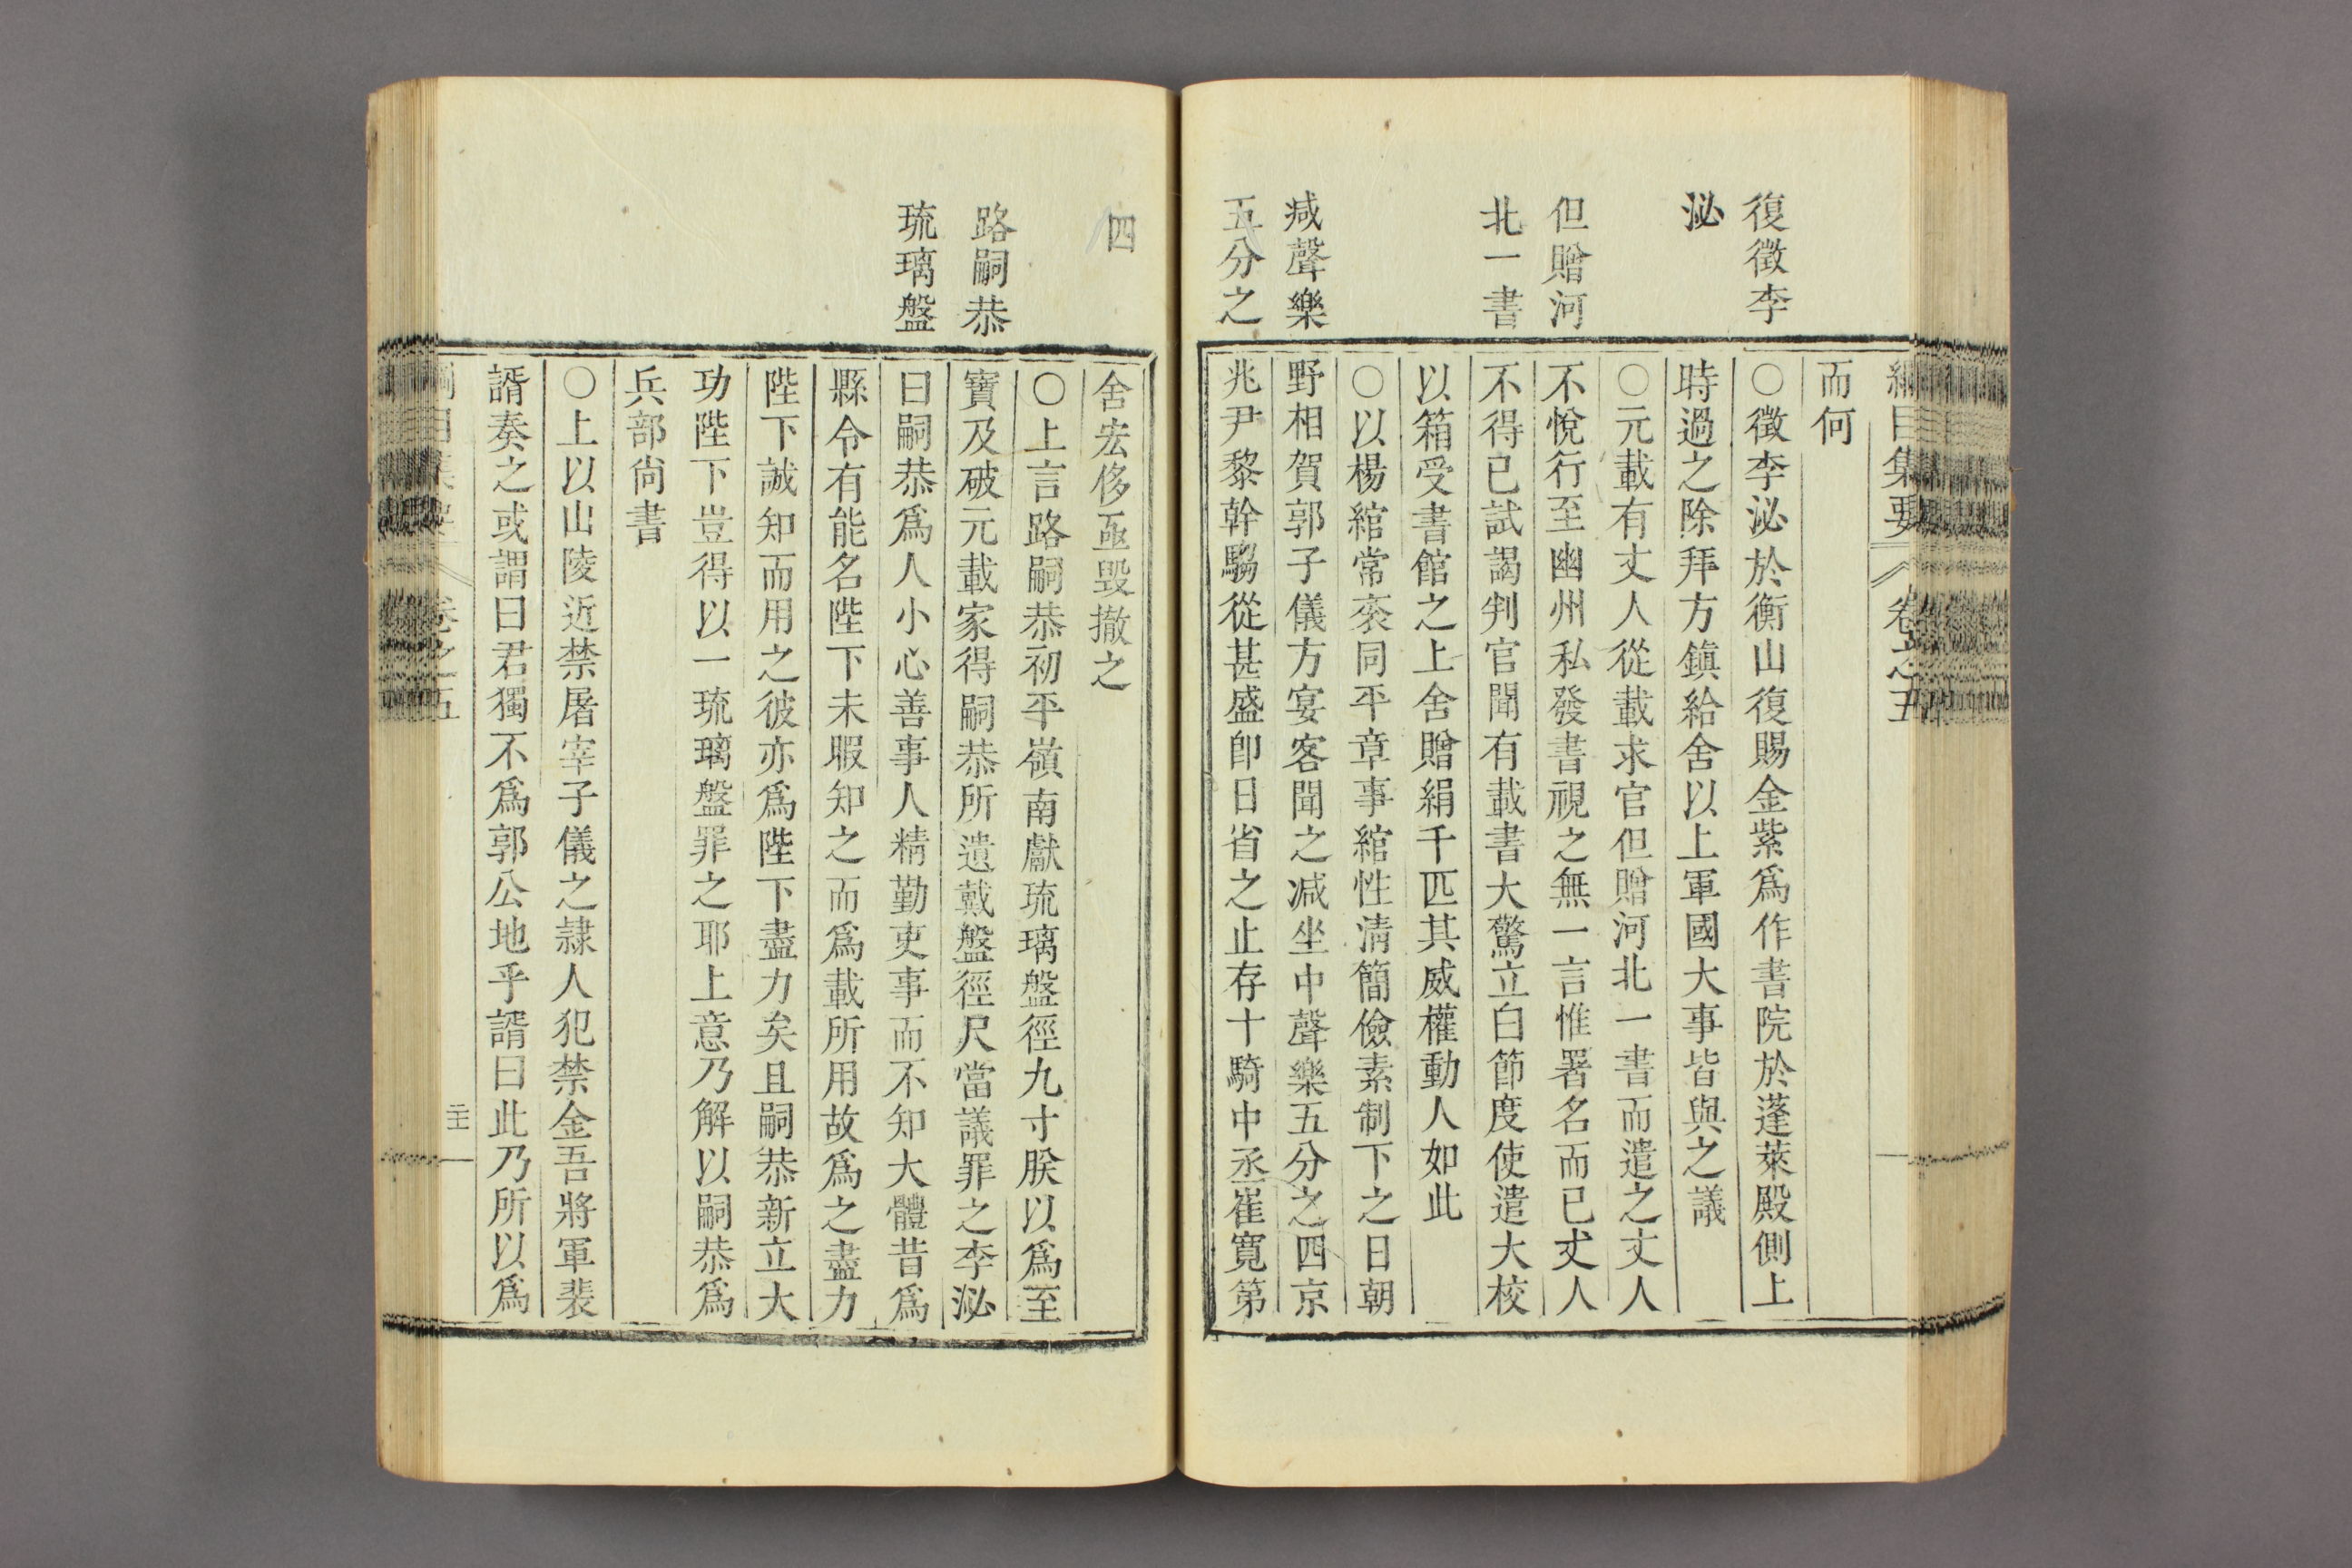 復徵李
泌
但贈河
北一書
减聲樂
五分之
綱目集要 卷之五
而何
○徵李泌於衡山復賜金紫爲作書院於蓬萊殿側上
時過之除拜方鎮給舍以上軍國大事皆與之議
○元載有丈人從載求官但贈河北一書而遣之丈人
不悅行至幽州私發書視之無一言惟署名而已丈人
不得已試謁判官聞有載書大驚立白節度使遣大校
以箱受書館之上舍贈絹千匹其威權動人如此
○以楊綰常袞同平章事綰性清簡儉素制下之日朝
野相賀郭子儀方宴客聞之减坐中聲樂五分之四京
兆尹黎幹騶從甚盛即日省之止存十騎中丞崔寬第
四
路嗣恭
琉璃盤
舍宏侈亟毀撤之
○上言路嗣恭初平嶺南獻琉璃盤徑九寸朕以爲至
寶及破元載家得嗣恭所遺載盤徑尺當議罪之李泌
曰嗣恭爲人小心善事人精勤吏事而不知大體昔爲
縣令有能名陛下未暇知之而爲載所用故爲之盡力
陛下誠知而用之彼亦爲陛下盡力矣且嗣恭新立大
功陛下豈得以一琉璃盤罪之耶上意乃解以嗣恭爲
兵部尚書
○上以山陵近禁屠宰子儀之隷人犯禁金吾將軍裴
諝奏之或謂曰君獨不爲郭公地乎諝曰此乃所以爲
卷之五